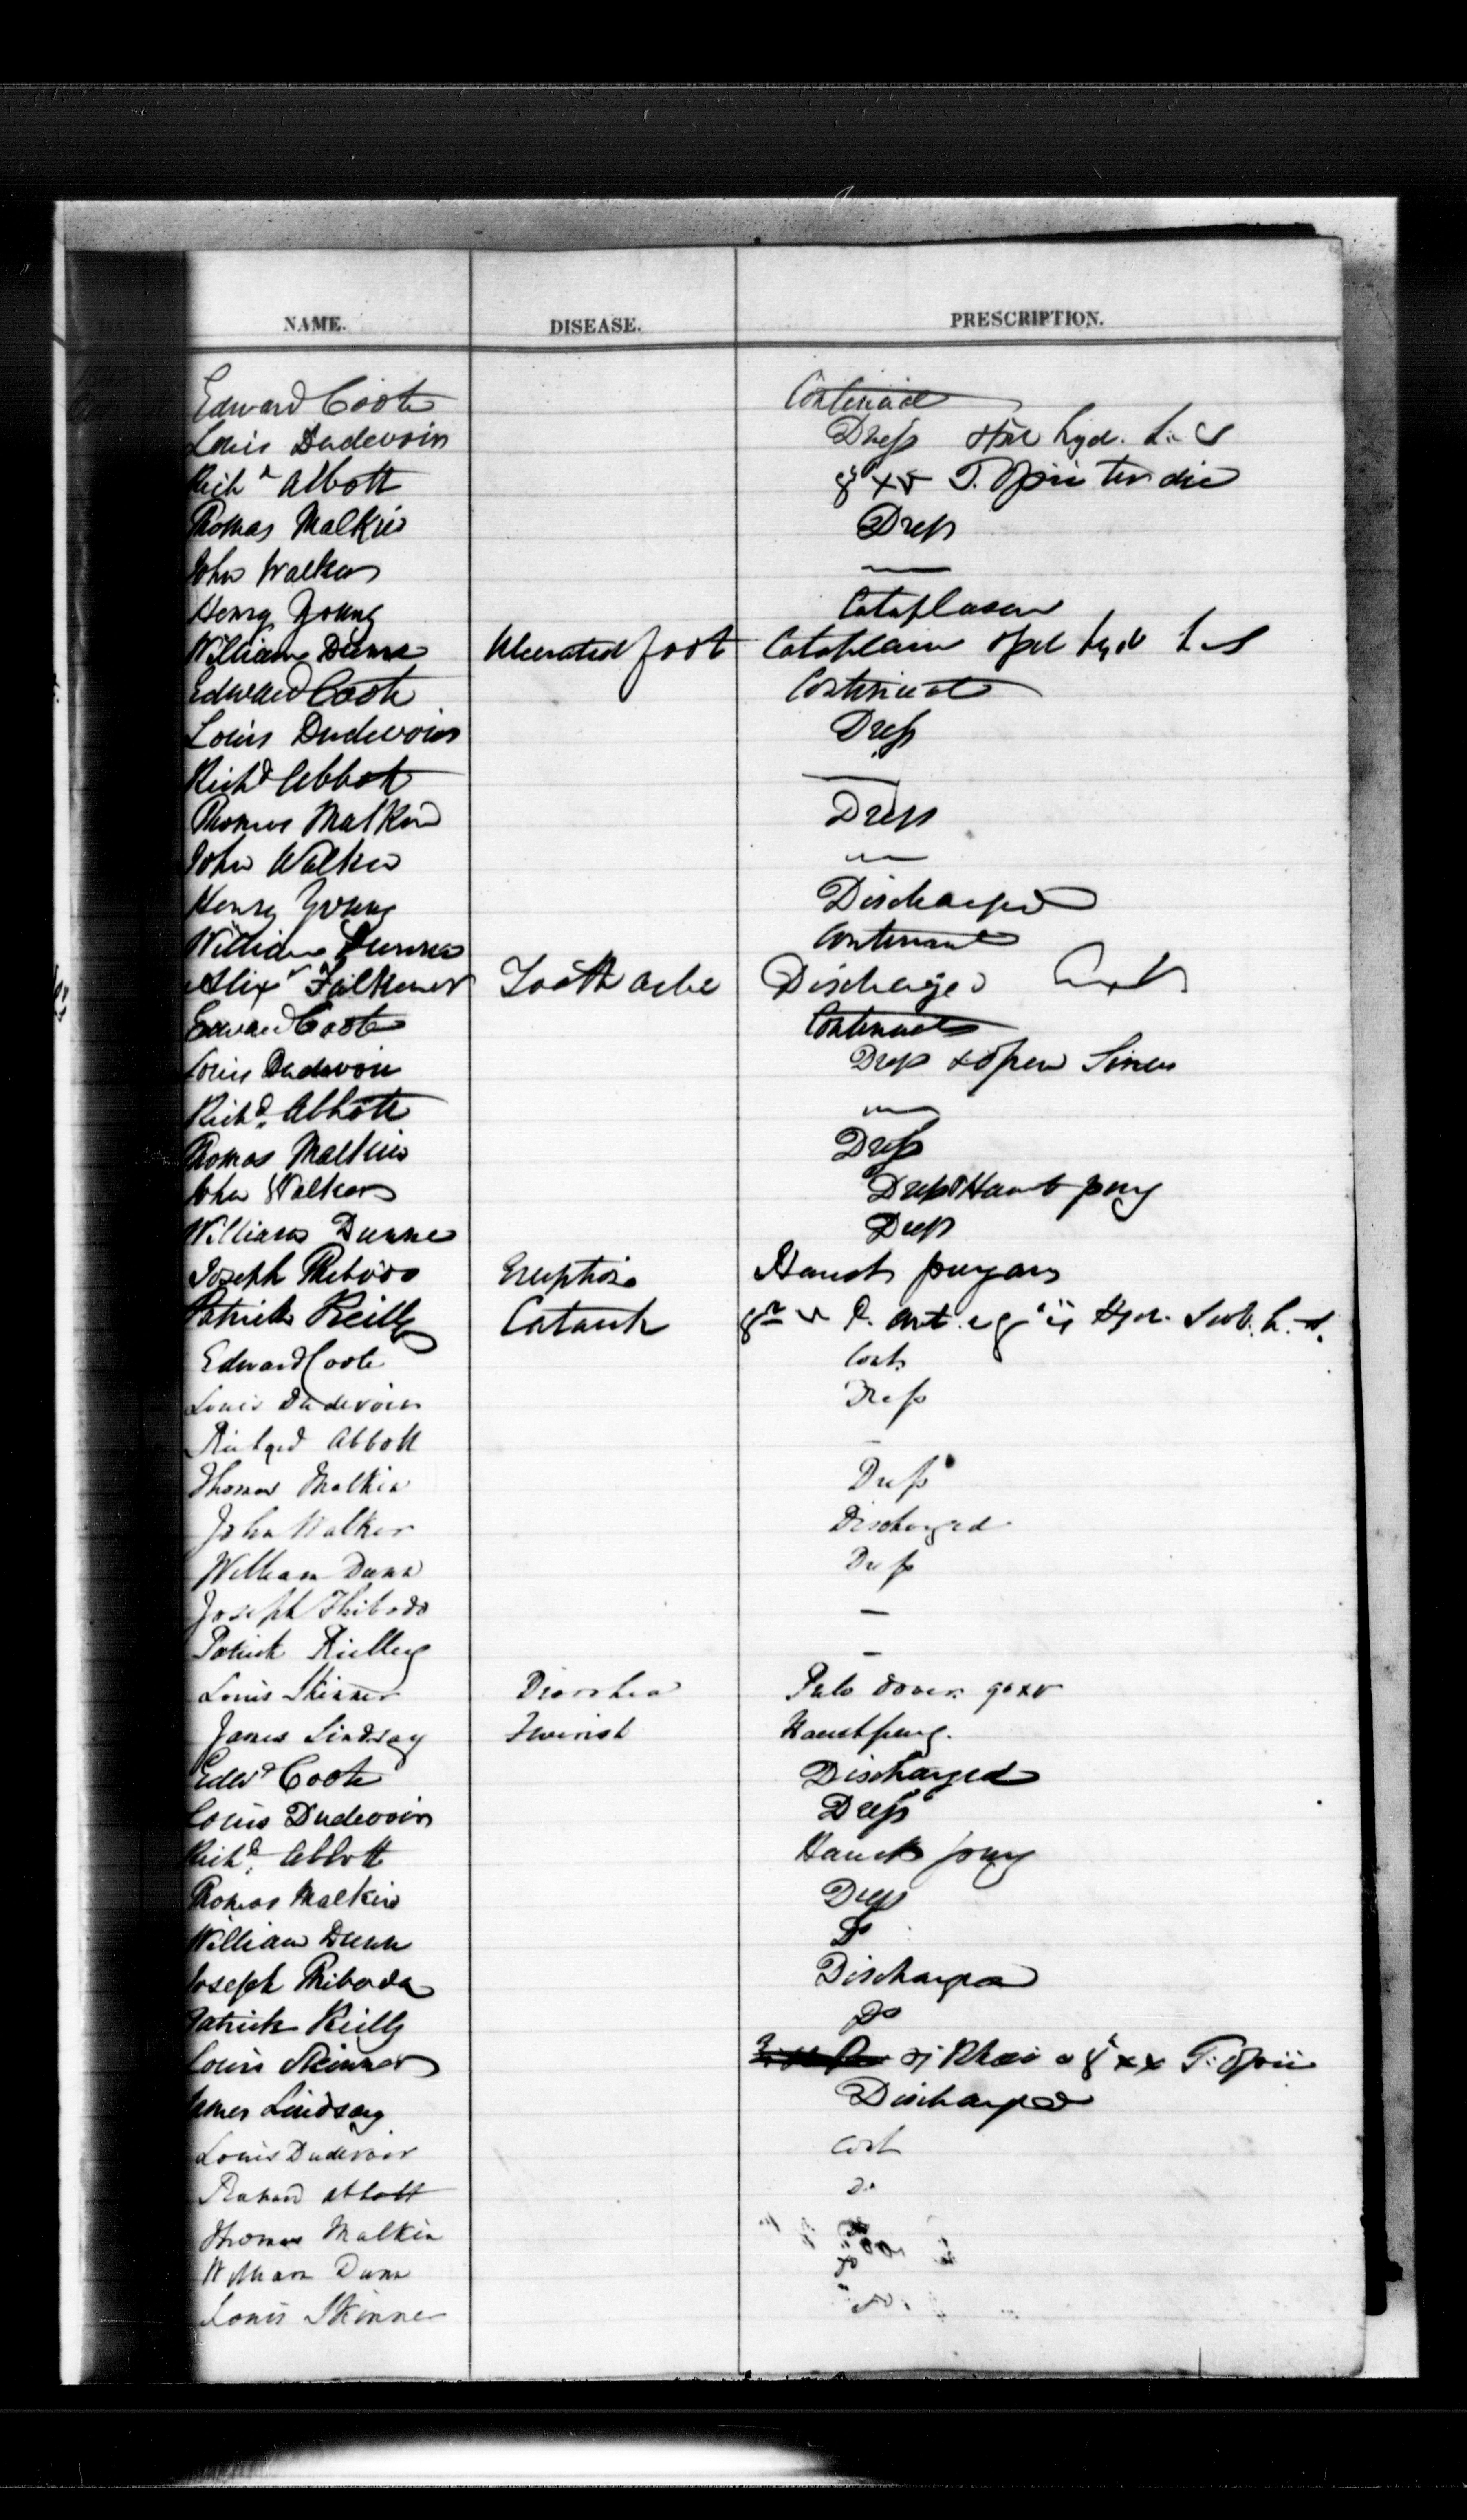 NAME. DISEASE. PRESCRIPTION.
Edward Coote Continued
Louis Dudevoin Dress hyd.
Richd Abbott xv T. Opii ter die
Thomas Malkin Dress
John Walker —
Henry Young Cataplasm
William Dunne Ulcerated foot Cataplasm
Edward Coote Continued
Louis Dudevoin Dress
Richd Abbott —
Thomas Malkin Dress
John Walker —
Henry Young Discharged
William Dunne Continued
Alexr Falkener Tooth ache Discharged
Edward Coote Continued
Louis Dudevoin Dress & open Sinus
Richd. Abbott —
Thomas Malkin Dress
John Walker Dress & Haust purg
William Dunne Dress
Joseph Thibodo Eruption Haust purgans
Patrick Reilly Catarrh
Edward Coote Cont.
Louis Dudevoin Dress
Richard Abbott —
Thomas Malkin Dress
John Walker Discharged
William Dunn Dress
Joseph Thibodo —
Patrick Rielley —
Louis Skinner Diarrhea Pulv dover. grxv
James Lindsay Feverish Haust purg.
Edwd Coote Discharged
Louis Dudevoin Dress
Richd. Abbott Haust purg
Thomas Malkin Dress
William Dunn Do
Joseph Thiboda Discharged
Patrick Reilly Do
Louis Skinner Rhei xx T. Opii
James Lindsay Discharged
Louis Dudevoir Cont
Richard Abbott Do
Thomas Malkin
William Dunn
Louis Skinner